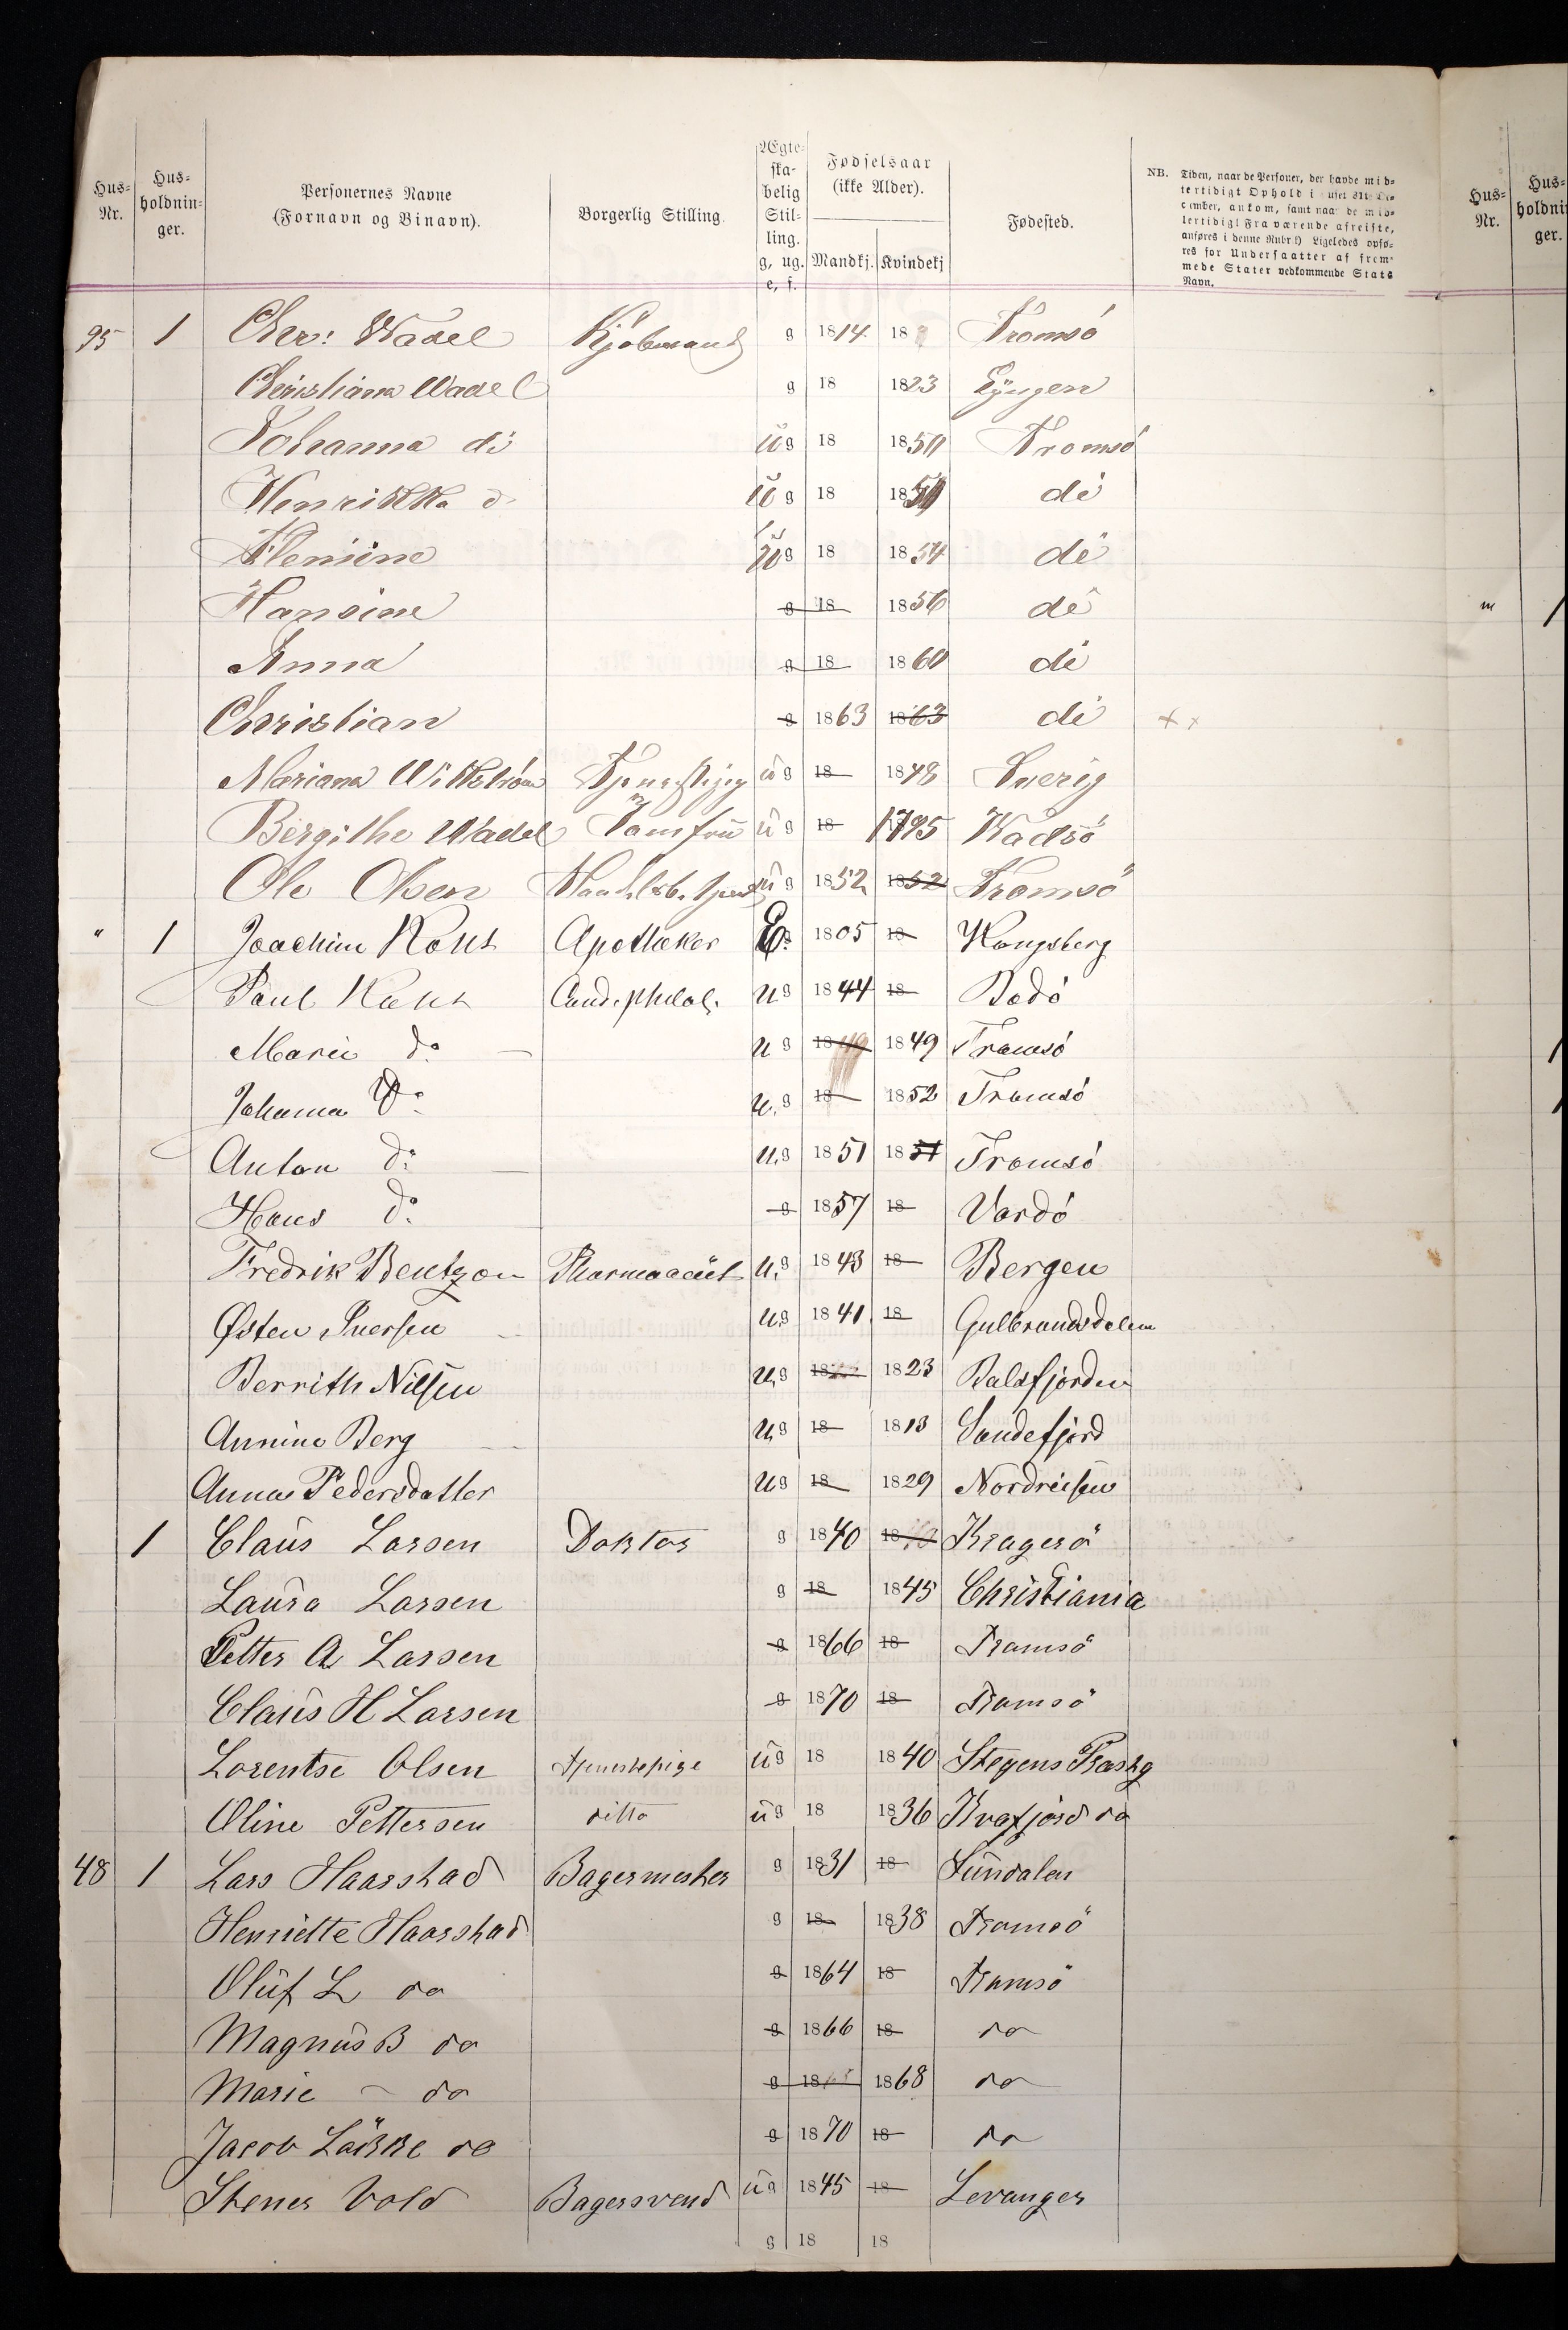 Hus-Nr. Hus-holdnin-ger. Personernes Navne (Fornavn og Binavn). Borgerlig Stilling. Ægte-ska-belig Stil-ling. g, ug. e, f. Fødselsaar (ikke Alder). Mandkj. Kvindekj Fødested.
NB. Tiden, naar de Personer, der havde mid-
lertidigt Ophold i Huset 31te De-
cember, ankom, samt naar de mid-
lertidigt Fraværende afreiste,
anføres i denne Rubrik Ligeledes opfø-
res for Undersaatter af frem-
mede Stater vedkommende Stats
Navn.
Hus-Nr. Hus-
95 1 Chr: Wadel Kjøbmand g 1814 18 Tromsø
Christiana Wadel g 18 1823 Lyngen
Johanna do ug 18 1850 Tromsø
Henrikka d ug 18 18 do
ug 18 1854 do
Hansine g 18 1856 do
Anna g 18 1860 do
Christian g 1863 1863 do
Mariana Wikström Tjenestpige ug 18 1848 Sverig
Bergithe Wadel Jomfru ug 18 1795 Wadsø
Ole Olsen ug 1852 1852 Tromsø
" 1 Joachim Apotheker E. 1805 18 Kongsberg
Paul Cand. philol. ug 1844 18 Bodø
Marie do ug 18 1849 Tromsø
Johanna Do u.g 18 1852 Tromsø
Anton do u.g 1851 1851 Tromsø
Hans do g 1857 18 Vardø
Fredrik Bentzon Pharmaceüt u.g 1843 18 Bergen
Østen Iversen ug 1841 18 Gulbrandsdalen
Berrith Nilsen ug 18 1823 Balsfjorden
Annine Berg ug 18 1813 Sandefjord
Anna Pedersdatter ug 18 1829 Nordreisen
1 Claus Larsen Doktor g 1840 18 Kragerö
Laura Larsen g 18 1845 Christiania
Petter A Larsen g 1866 18 Tromsö
Claus H Larsen g 1870 18 Tromsö
Lorentse Olsen Tjenestepige ug 18 1840 Stegens
Oline Pettersen ditto ug 18 1836 Kvæfjord do
48 1 Lars Haarstad Bagermester g 1831 18 Sundalen
Henriette Haarstad g 18 1838 Tromsö
Oluf L do g 1864 18 Tromsö
Magnus B do g 1866 18 do
Marie - do g 18 1868 do
Jacob do g 1870 18 do
Stener Vold Bagersvend ug 1845 18 Levanger
g 18 18